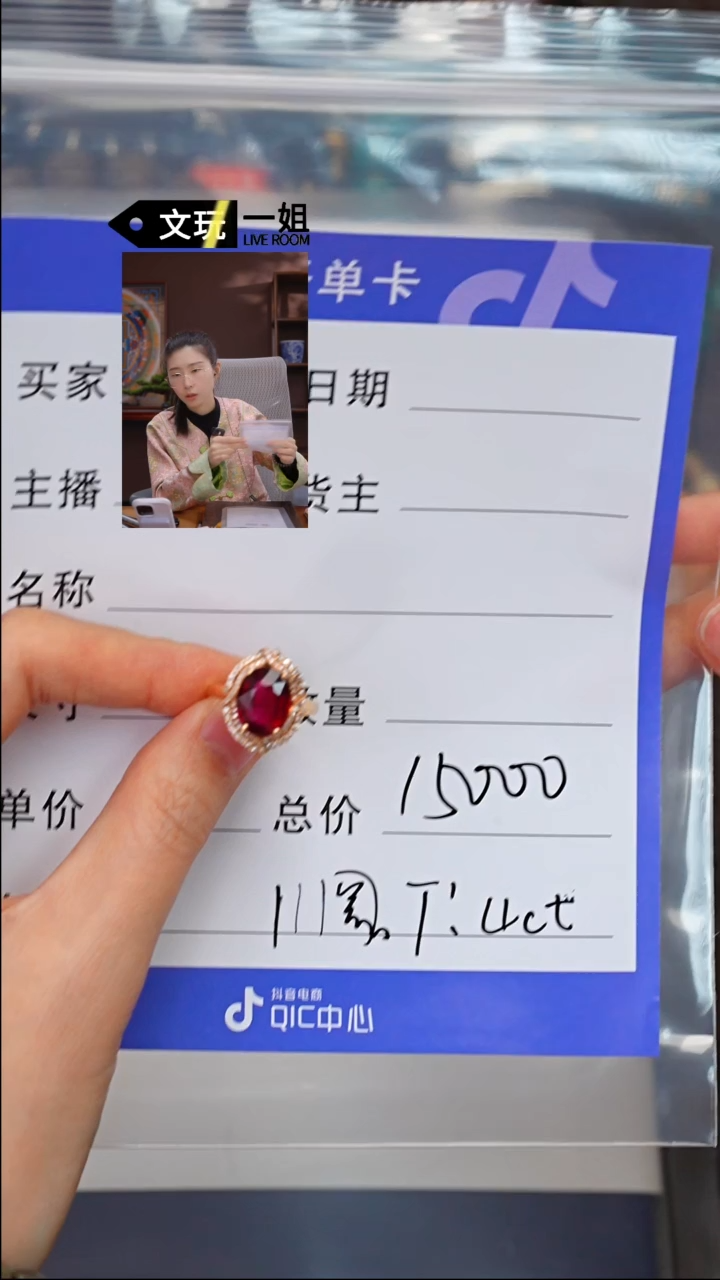 文玩一姐
LIVE ROOM
单卡
买家
日期
主播
货主
名称
数量
单价
总价 15000
T: 4ct
抖音电商
QIC中心